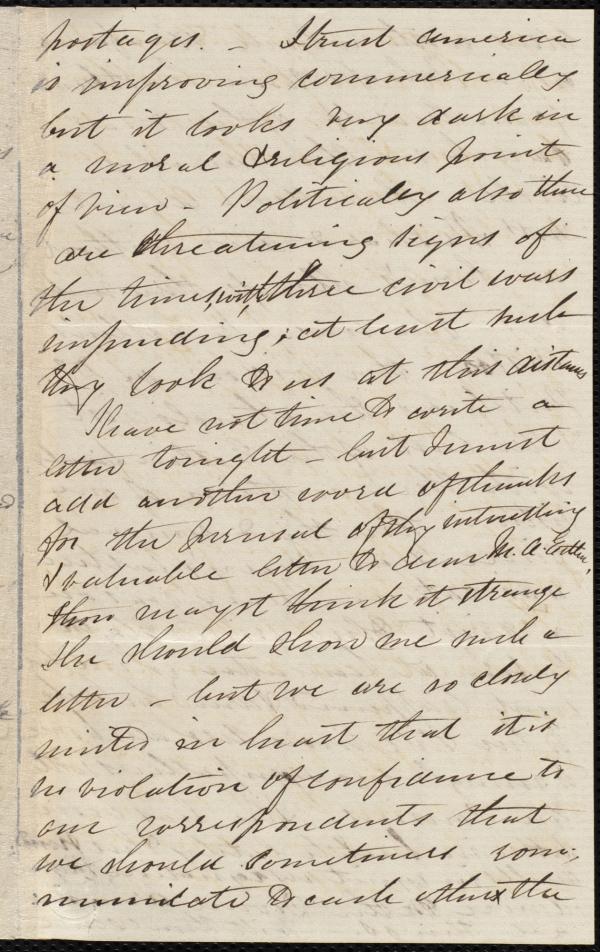 postages. – I trust America
is improving commercially
but it looks very dark in
a moral & religious point
of view – Politically also there
are threatening signs of
the times, with three civil wars
impending; at least such
they look to us at this distance
I have not time to write a
letter tonight – but I must
add another word of thanks
for the perusal of thy interesting
& valuable letter to dear M. A. Estlin,
thou mayst think it strange
she should show me such a
letter – but we are so closely
united in heart that it is
no violation of confidence to
our correspondents that
we should sometimes com-
municate to each other the